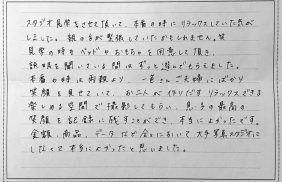 スタジオ見学をさせて頂いて、本番の時にリラックスしていた気が
しました。親の方が緊張していたかもしれません。笑
見学の時もベッドやおもちゃを用意して頂き、
説明を聞いている間はずっと遊んでもらえました。
本番の時は両親より、一色さんご夫婦にばかり
笑顔を見せていて、お二人が作りだすリラックスできる
楽しめる空間で撮影してもらい、息子の最高の
笑顔を記録に残すことができ、本当によかったです。
金額、商品、データなど全てにおいて、大手写真スタジオに
しなくて本当によかったと思いました。